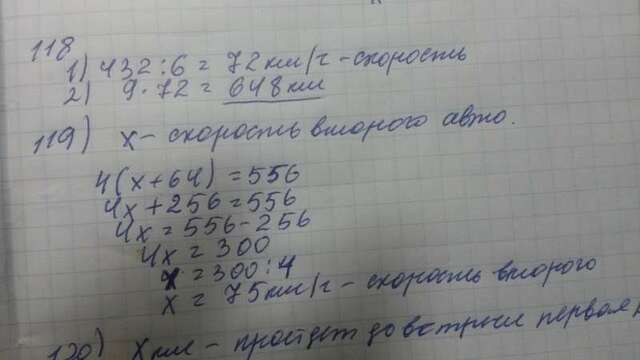 118
1) 432:6 = 72 км/г - скорость
2) 9·72 = 648 км
119) х - скорость второго авто.
4(х+64) = 556
4х + 256 = 556
4х = 556 - 256
4х = 300
х = 300:4
х = 75 км/г - скорость второго
120) Х км - пройдет до встречи первая